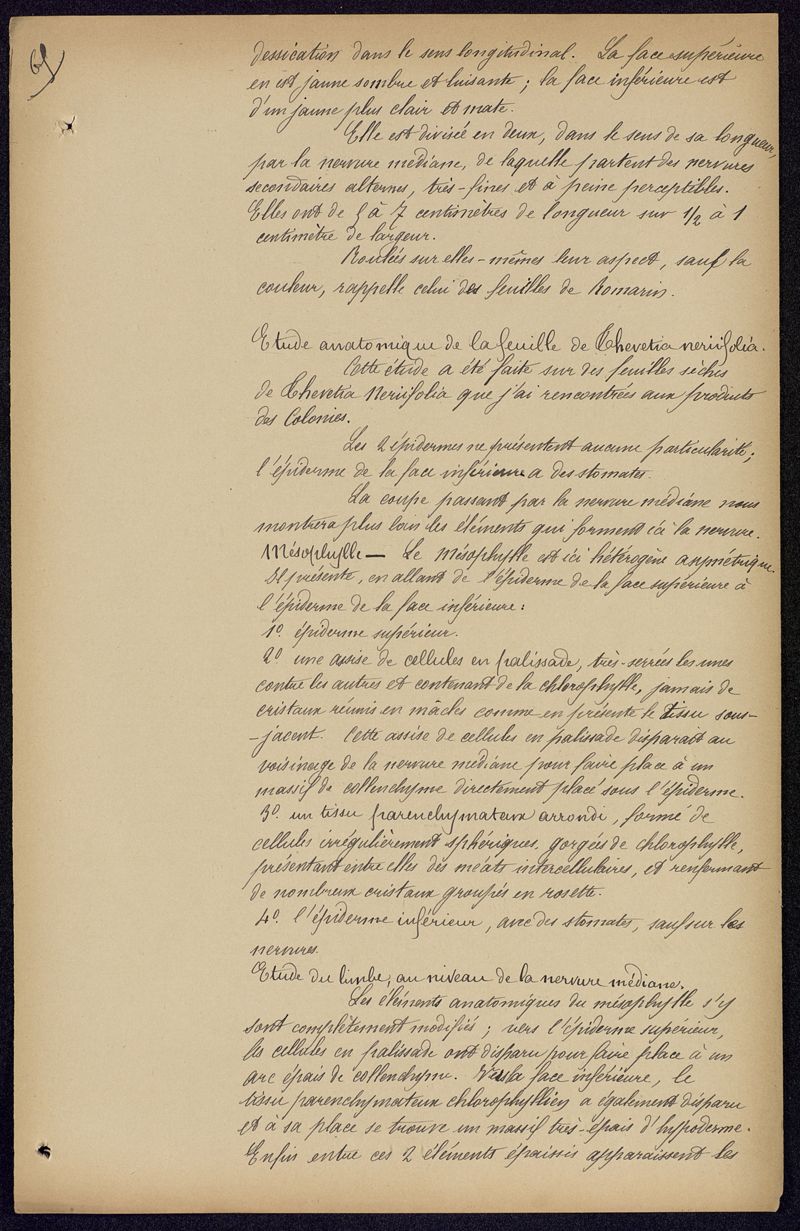 dessication dans le sens longitudinal. La face supérieure
en est jaune sombre et luisante ; la face inférieure est
d'un jaune plus clair et mate.
Elle est divisée en deux, dans le sens de sa longueur,
par la nervure médiane, de laquelle partent des nervures
secondaires alternes, très-fines et à peine perceptibles.
Elles ont de 5 à 7 centimètres de longueur sur 1/2 à 1
centimètre de largeur.
Roulées sur elles-mêmes leur aspect, sauf la
couleur, rappelle celui des feuilles de Romarin.
Etude anatomique de la feuille de Thevetia neriifolia.
Cette étude a été faite sur des feuilles sèches
de Thevetia Neriifolia que j'ai rencontrées aux produits
des Colonies.
Les 2 épidermes ne présentent aucune particularité ;
l'épiderme de la face inférieure a des stomates.
La coupe passant par la nervure médiane nous
montrera plus loin les éléments qui forment ici la nervure.
Mésophylle — Le mésophylle est ici hétérogène asymétrique.
Il présente, en allant de l'épiderme de la face supérieure à
l'épiderme de la face inférieure :
1º épiderme supérieur.
2º une assise de cellules en palissade, très-serrées les unes
contre les autres et contenant de la chlorophylle, jamais de
cristaux réunis en mâcles comme en présente le tissu sous-
-jacent. Cette assise de cellules en palissade disparait au
voisinage de la nervure médiane pour faire place à un
massif de collenchyme directement placé sous l'épiderme.
3º. un tissu parenchymateux arrondi, formé de
cellules irrégulièrement sphériques, gorgées de chlorophylle,
présentant entre elles des méats intercellulaires, et renfermant
de nombreux cristaux groupés en rosette.
4º. l'épiderme inférieur, avec des stomates, sauf sur les
nervures.
Etude du limbe, au niveau de la nervure médiane.
Les éléments anatomiques du mésophylle s'y
sont complètement modifiés ; vers l'épiderme supérieur,
les cellules en palissade ont disparu pour faire place à un
arc épais de collenchyme. Vers la face inférieure, le
tissu parenchymateux chlorophyllien a également disparu
et à sa place se trouve un massif très-épais d'hypoderme.
Enfin entre ces 2 éléments épaissis apparaissent les